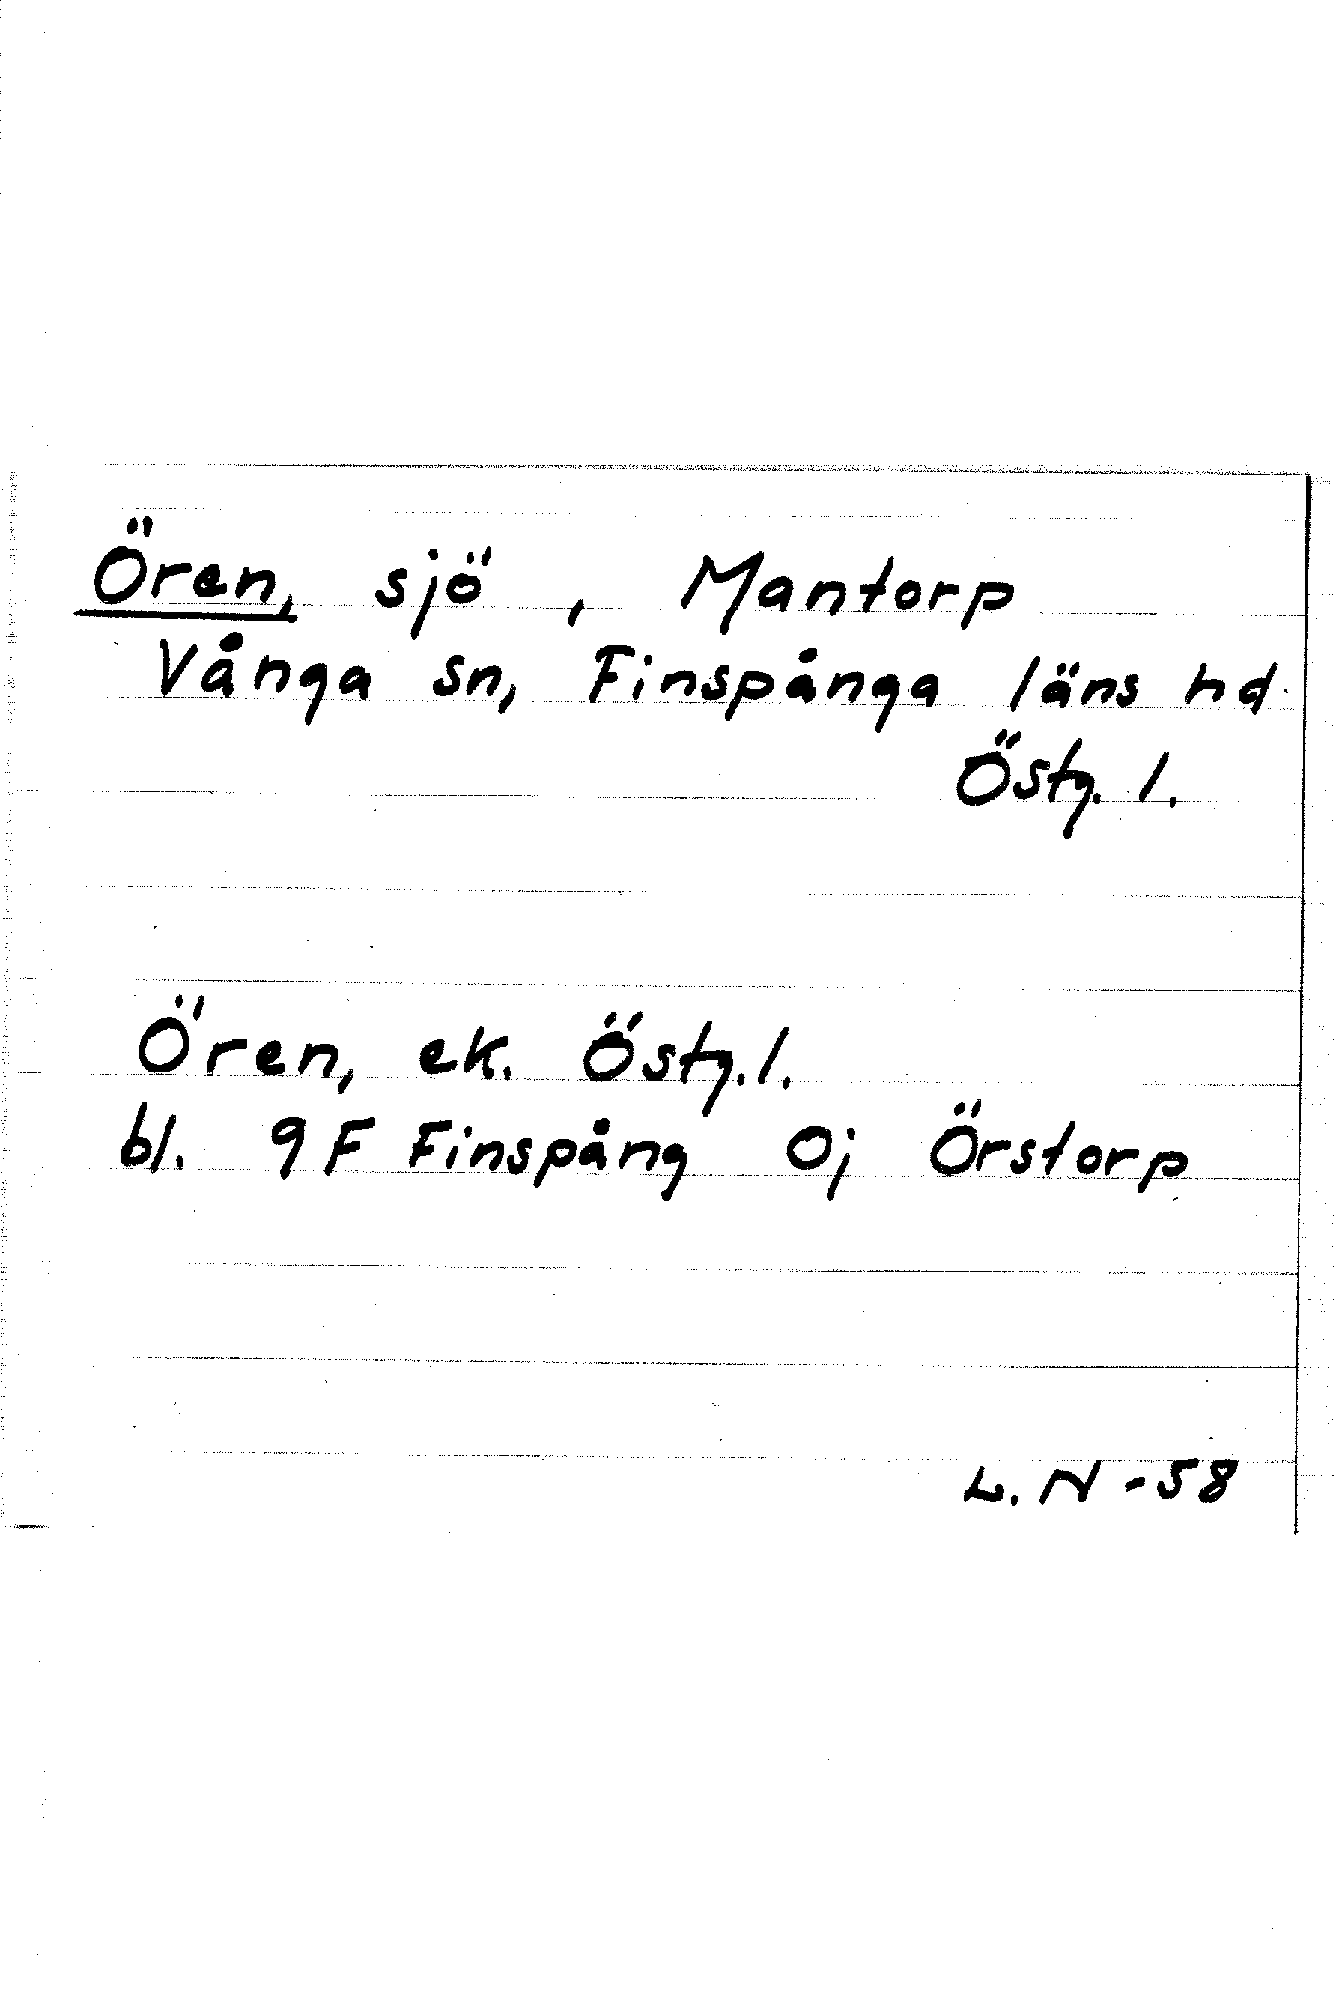 Ören, sjö, Mantorp
Vånga sn, Finspånga läns hd
Östg. l.
Ören, ek. Östg. l.
bl. 9F Finspång 0j Örstorp
L. N - 58